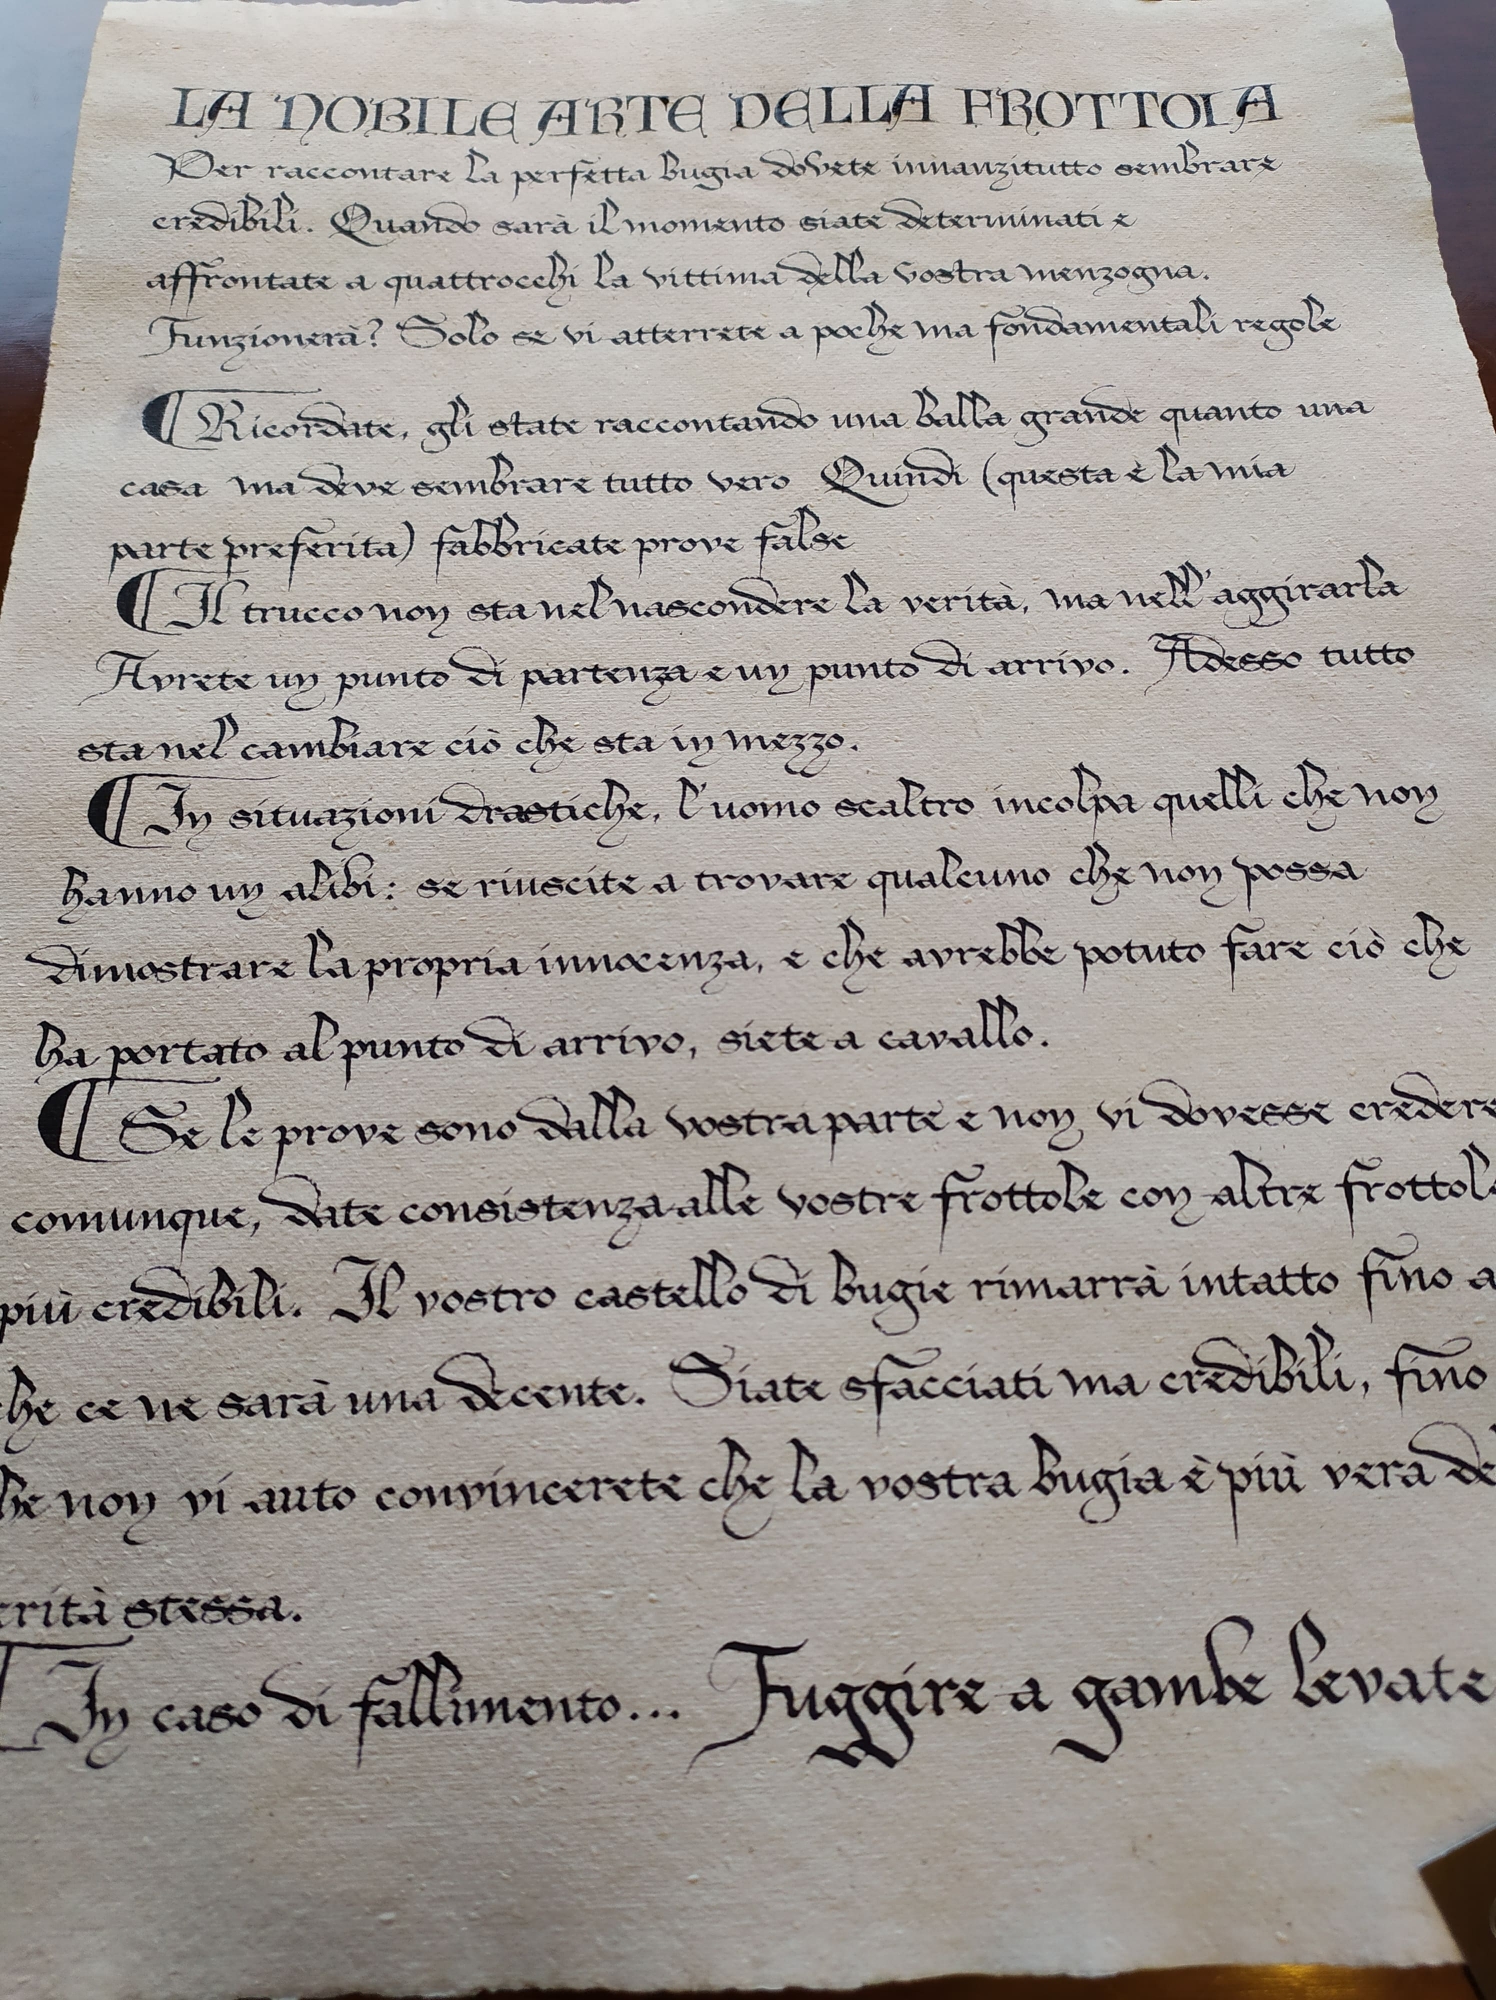 LA NOBILE ARTE DELLA FROTTOLA
Per raccontare la perfetta bugia dovete innanzitutto sembrare
credibili. Quando sarà il momento siate determinati e
affrontate a quattrocchi la vittima della vostra menzogna.
Funzionerà? Solo se vi atterrete a poche ma fondamentali regole
¶ Ricordate, gli state raccontando una balla grande quanto una
casa ma deve sembrare tutto vero Quindi (questa è la mia
parte preferita) fabbricate prove false
¶ Il trucco non sta nel nascondere la verità, ma nell'aggirarla
Avrete un punto di partenza e un punto di arrivo. Adesso tutto
sta nel cambiare ciò che sta in mezzo.
¶ In situazioni drastiche, l'uomo scaltro incolpa quelli che non
hanno un alibi: se riuscite a trovare qualcuno che non possa
dimostrare la propria innocenza, e che avrebbe potuto fare ciò che
ha portato al punto di arrivo, siete a cavallo.
¶ Se le prove sono dalla vostra parte e non vi dovesse credere
comunque, date consistenza alle vostre frottole con altre frottole
più credibili. Il vostro castello di bugie rimarrà intatto fino a
che ce ne sarà una decente. Siate sfacciati ma credibili, fino
he non vi auto convincerete che la vostra bugia è più vera de
erità stessa.
¶ In caso di fallimento... Fuggire a gambe levate